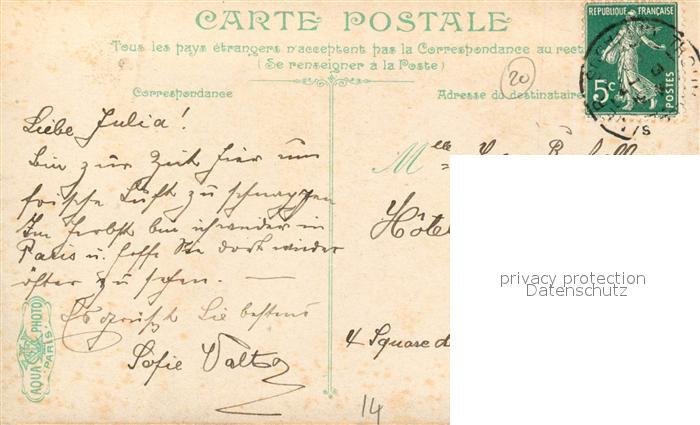 CARTE POSTALE
Tous les pays étrangers n'acceptent pas la Correspondance au rect
(Se renseigner à la Poste)
RÉPUBLIQUE FRANÇAISE
5c
POSTES
20
Correspondance
Adresse du destinataire
Liebe Julia!
Bin zur Zeit hier um
frische Luft zu schnappen
Im Herbst bin ich wieder in
Paris u. hoffe Sie dort wieder
öfter zu sehen. —
Es grüsst Sie bestens
Sofie
Mlle
Hôtel
4 Square d
14
AQUA PHOTO
PARIS
privacy protection
Datenschutz